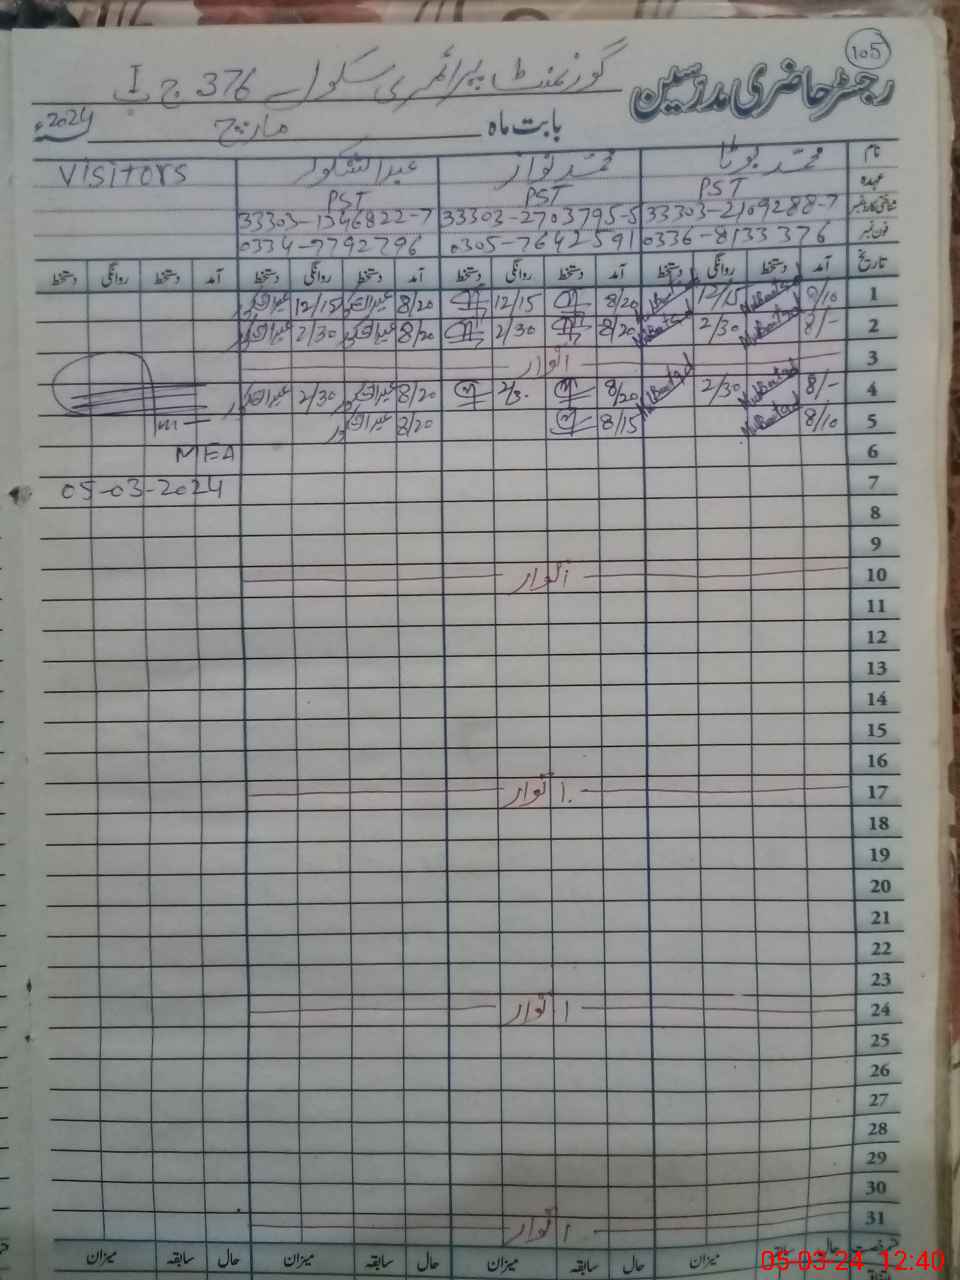 105
رجسٹر حاضری مدرسین گورنمنٹ پرائمری سکول 376 ج ب I
بابت ماہ مارچ 2024ء
نام محمد بوٹا محمد نواز عبدالشکور Visitors
عہدہ PST PST PST
شناختی کارڈ نمبر 33303-2109288-7 33303-2703795-5 33303-1346822-7
فون نمبر 0336-8133376 0305-7642591 0334-7792796
تاریخ آمد دستخط روانگی دستخط آمد دستخط روانگی دستخط آمد دستخط روانگی دستخط آمد دستخط روانگی دستخط
1 8/10 12/15 8/20 12/15 8/20 12/15
2 8/- 2/30 8/20 2/30 8/20 2/30
3 اتوار
4 8/- 2/30 8/20 2/3. 8/20 2/30
5 8/10 8/15 8/20
6 MEA
7 05-03-2024
8
9
10 اتوار
11
12
13
14
15
16
17 اتوار
18
19
20
21
22
23
24 اتوار
25
26
27
28
29
30
31 اتوار
حال سابقہ میزان حال سابقہ میزان حال سابقہ میزان حال سابقہ میزان
05-03-24 12:40